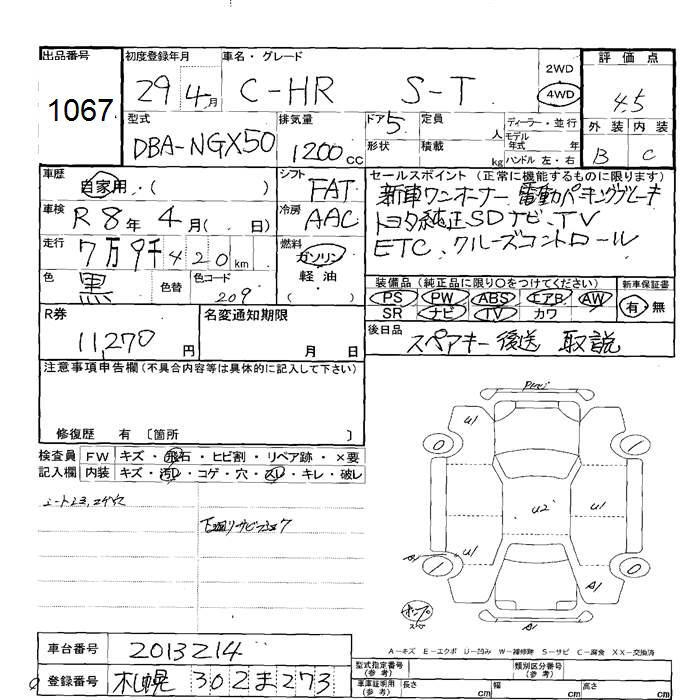 出品番号 初度登録年月 車名・グレード 評価点
1067 29年4月 C-HR S-T 2WD 4WD 4.5
型式 排気量 ドア 5 定員 人 ディーラー・並行 外装 内装
DBA-NGX50 1200cc 形状 積載 kg モデル年式 年 B C
ハンドル 左・右
車歴 自家用・( ) シフト FAT セールスポイント(正常に機能するものに限ります)
車検 R8年4月( 日) 冷房 AAC 新車ワンオーナー 電動パーキングブレーキ
トヨタ純正SDナビ、TV
走行 7万9千420km 燃料 ガソリン ETC、クルーズコントロール
軽油
( )
色 黒 色替 色コード 209 装備品(純正品に限り○をつけてください) 新車保証書
PS PW ABS エアB AW 有・無
SR ナビ TV カワ
R券 11,270円 名変通知期限 月 日 後日品 スペアキー後送 取説
注意事項申告欄(不具合内容等は具体的に記入して下さい)
修復歴 有 〔箇所 〕
検査員 FW キズ・飛石・ヒビ割・リペア跡・×要
記入欄 内装 キズ・汚レ・コゲ・穴・スレ・キレ・破レ
下廻りサビ
U1
0 1
U2 U1
U1
1 0
A1
A1
A－キズ E－エクボ U－凹み W－補修跡 S－サビ C－腐食 XX－交換済
車台番号 2013214
型式指定番号(参考) 類別区分番号(参考)
登録番号 札幌 302ま273
車庫証明用(参考) 長さ cm 幅 cm 高さ cm